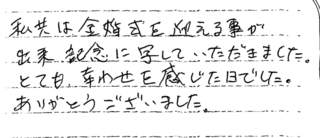 私共は金婚式を迎える事が
出来 記念に写していただきました。
とても、幸わせを感じた日でした。
ありがとうございました。